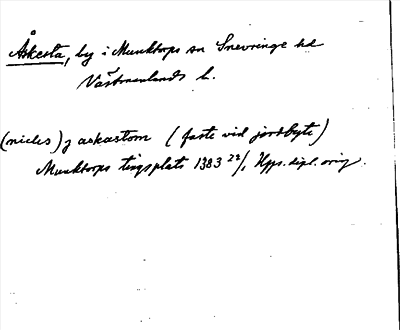 Åskesta, by i Munktorps sn Snevringe hd
Västmanlands l.
(nicles) j askastom (faste vid jordbyte)
Munktorps tingsplats 1383 22/1 Upps. dipl. orig.